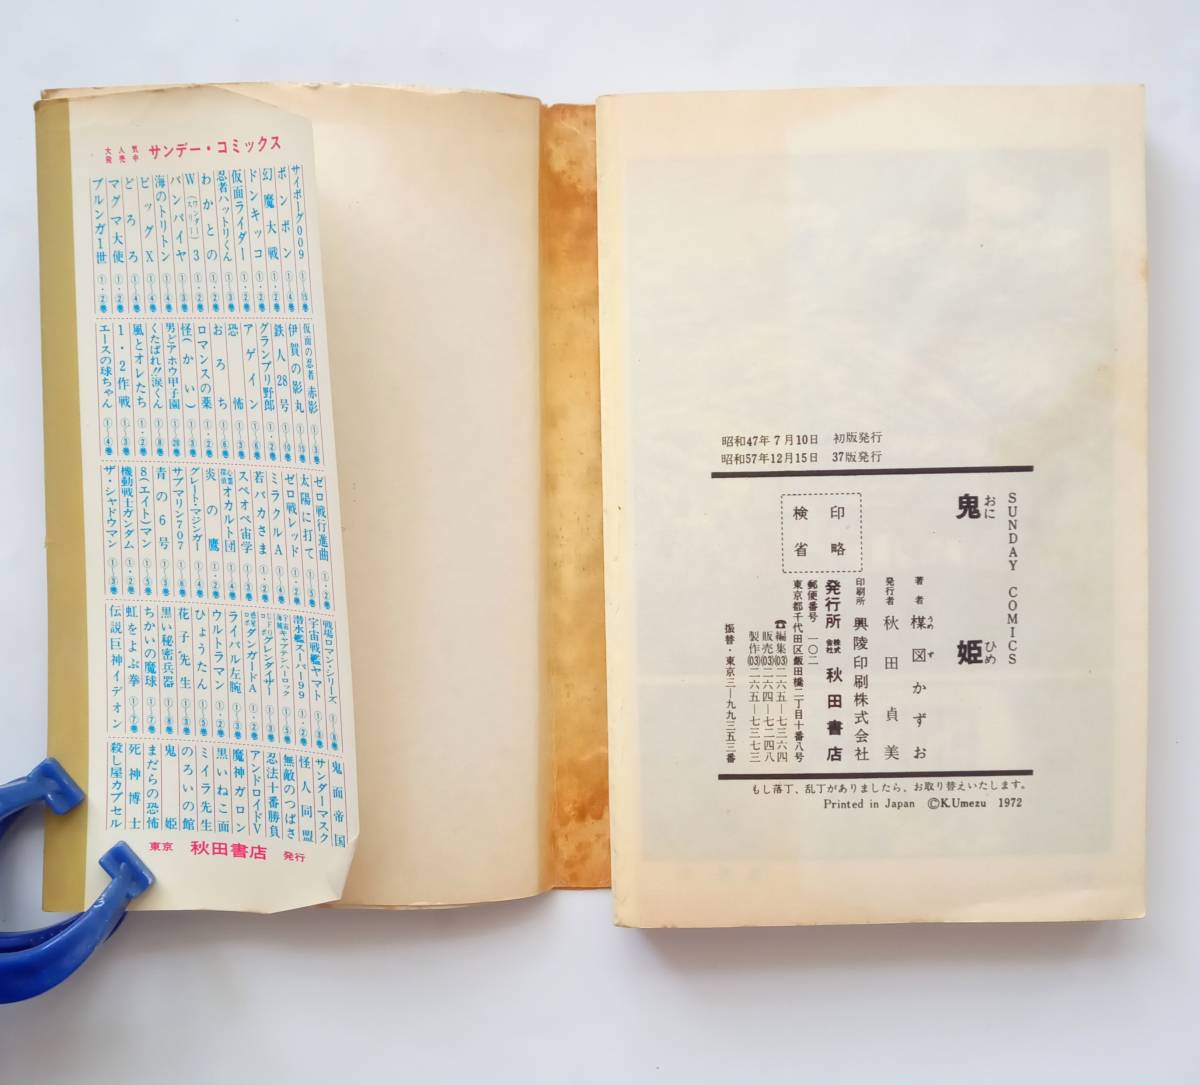 大人気
発売中
サンデー・コミックス
サイボーグ009 ①―⑮巻
ボンボン ①―④巻
幻魔大戦 ①・②巻
ドンキッコ ①・②巻
仮面ライダー
忍者ハットリくん
わかとの ①・②巻
W3
バンパイヤ ①―③巻
海のトリトン ①―④巻
ビッグX ①―④巻
どろろ ①―④巻
マグマ大使 ①・②巻
ブルンガ1世 ①・②巻
仮面の忍者 赤影 ①―③巻
伊賀の影丸 ①―⑮巻
鉄人28号 ①―⑩巻
グランプリ野郎 ①・②巻
アゲイン ①―⑥巻
恐怖
おろち
ロマンスの薬
怪(かい)
男どアホウ甲子園
くたばれ!!涙くん
風とオレたち ①・②巻
1・2作戦
エースの球ちゃん ①―④巻
ゼロ戦行進曲 ①・②巻
太陽に打て
ゼロ戦レッド
ミラクルA
若バカさま ①・②巻
スペオペ宙学
心霊探偵オカルト団
炎の鷹
グレート・マジンガー
サブマリン707
青の6号
8(エイト)マン
機動戦士ガンダム ①・②巻
ザ・シャドウマン
戦場ロマン・シリーズ
宇宙戦艦ヤマト
潜水艦スーパー99
宇宙海賊キャプテンハーロック
グレンダイザー
惑星ロボダンガードA
ライバル左腕
ウルトラマン
ひょうたん
花子先生
黒い秘密兵器
ちかいの魔球
虹をよぶ拳
伝説巨神イデオン
鬼面帝国
サンダーマスク
怪人同盟
無敵のつばさ
忍法十番勝負
アンドロイドV
魔神ガロン
黒いねこ面
ミイラ先生
のろいの館
鬼姫
まだらの恐怖
死神博士
殺し屋カプセル
東京 秋田書店 発行
昭和47年7月10日 初版発行
昭和57年12月15日 37版発行
SUNDAY COMICS
鬼姫
おに ひめ
著者 楳図かずお
うめ ず
発行者 秋田貞美
印刷所 興陵印刷株式会社
発行所 株式会社 秋田書店
郵便番号 一〇二
東京都千代田区飯田橋二丁目十番八号
☎編集(03)二六五―七三六四
販売(03)二六四―七二四八
製作(03)二六五―七三七三
振替・東京三―九九三五三番
印略
検省
もし落丁、乱丁がありましたら、お取り替えいたします。
Printed in Japan ©K.Umezu 1972